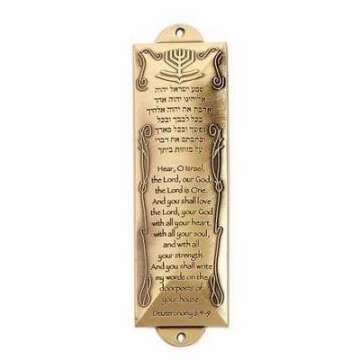 שמע ישראל יהוה
אלוהינו יהוה אחד
ואהבת את יהוה אלהיך
בכל לבבך ובכל
נפשך ובכל מאדך
וכתבתם את דברי
על מזוזות ביתך
Hear, O Israel,
the Lord, our God,
the Lord is One.
And you shall love
the Lord, your God
with all your heart,
with all your soul,
and with all
your strength.
And you shall write
my words on the
doorposts of
your house
Deuteronomy 6:4-9